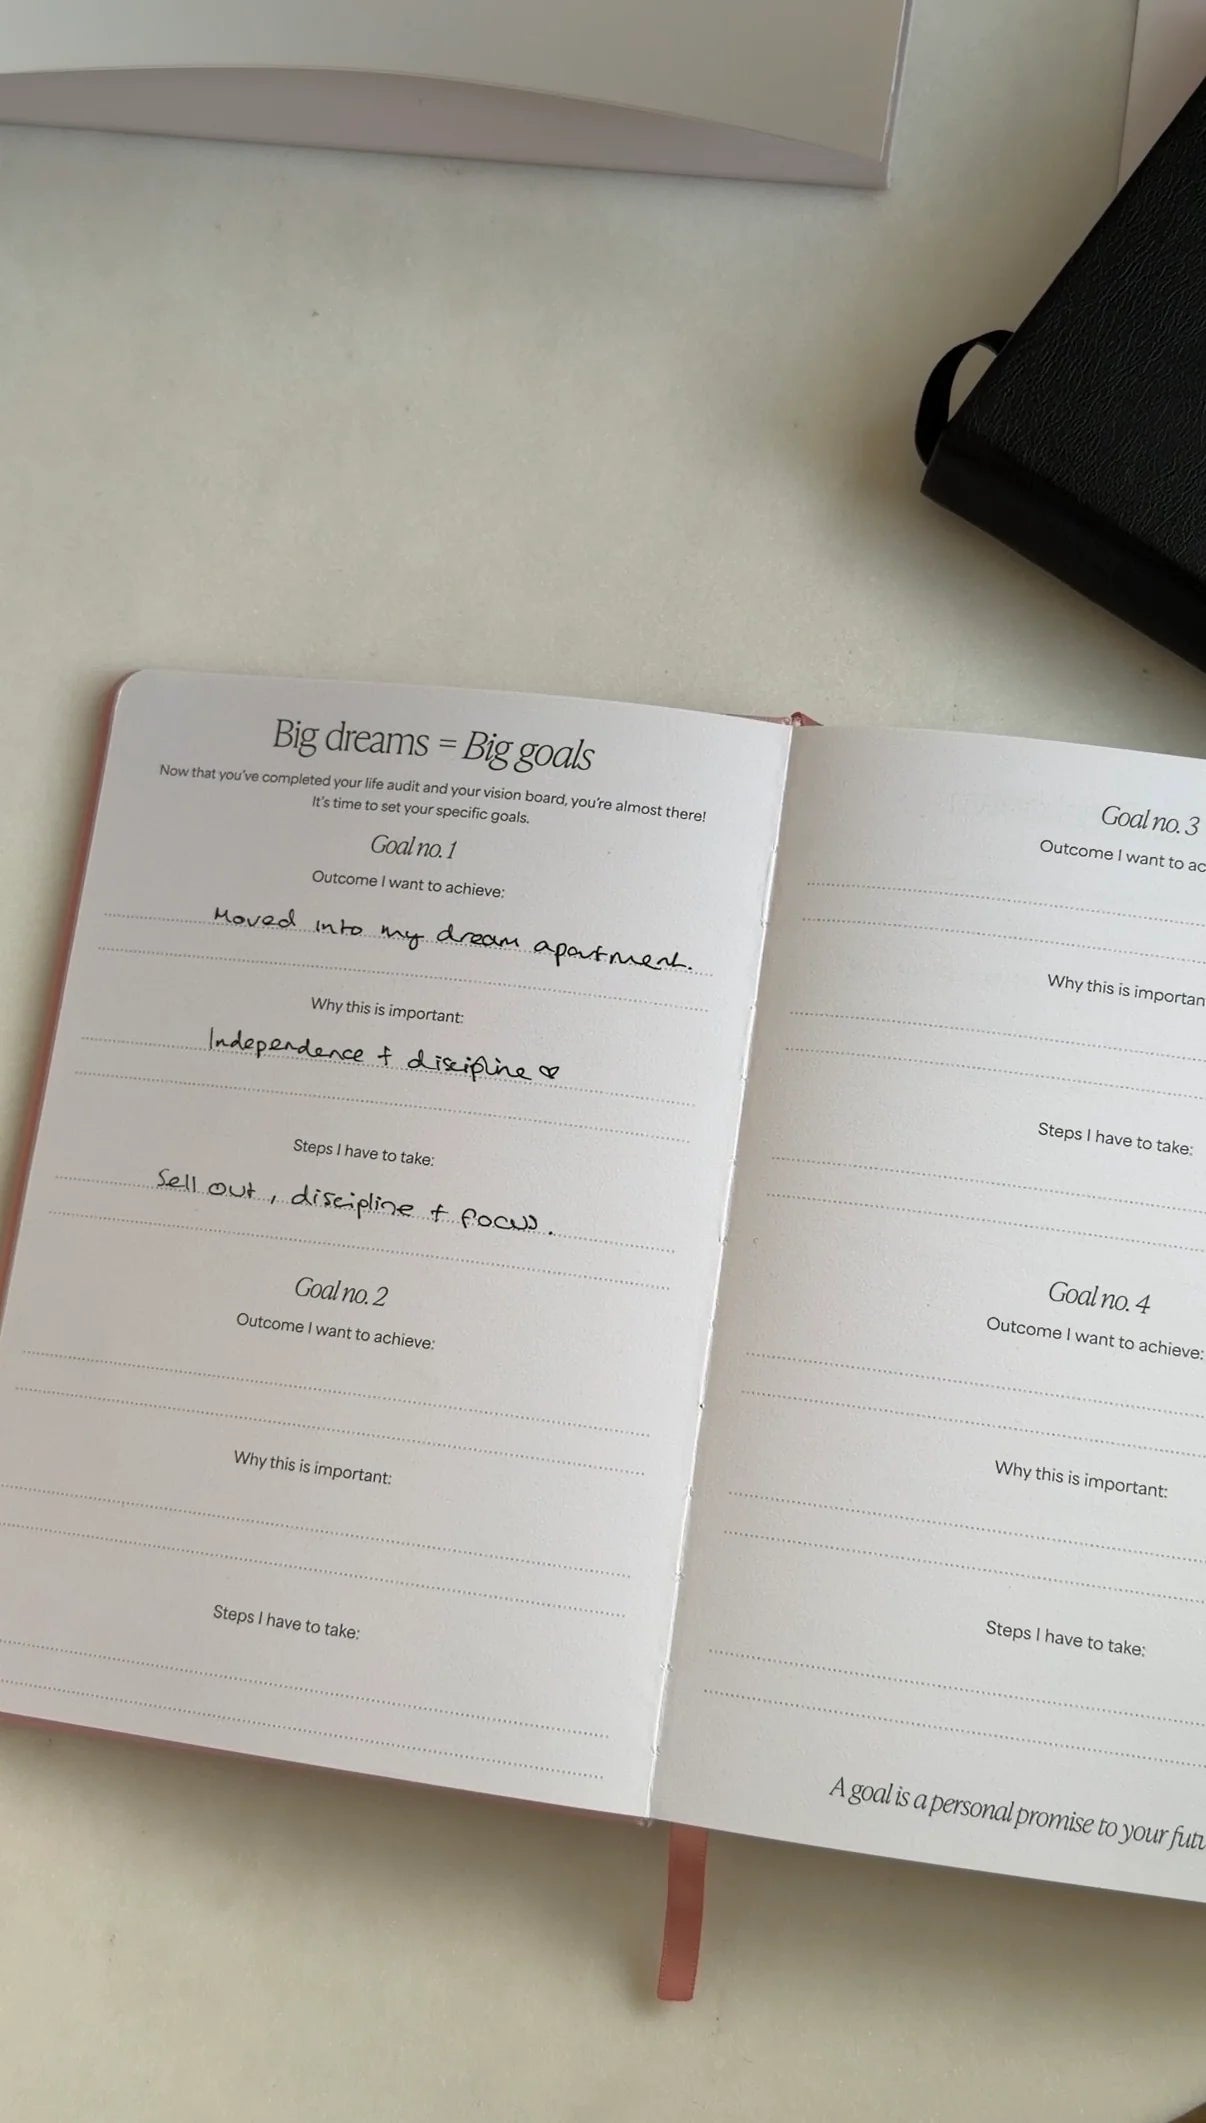 Big dreams = Big goals
Now that you've completed your life audit and your vision board, you're almost there!
It's time to set your specific goals.
Goal no. 1
Outcome I want to achieve:
Moved into my dream apartment.
Why this is important:
Independence + discipline ♡
Steps I have to take:
Sell out, discipline + focus.
Goal no. 2
Outcome I want to achieve:
Why this is important:
Steps I have to take:
Goal no. 3
Outcome I want to ac
Why this is importan
Steps I have to take:
Goal no. 4
Outcome I want to achieve:
Why this is important:
Steps I have to take:
A goal is a personal promise to your futu